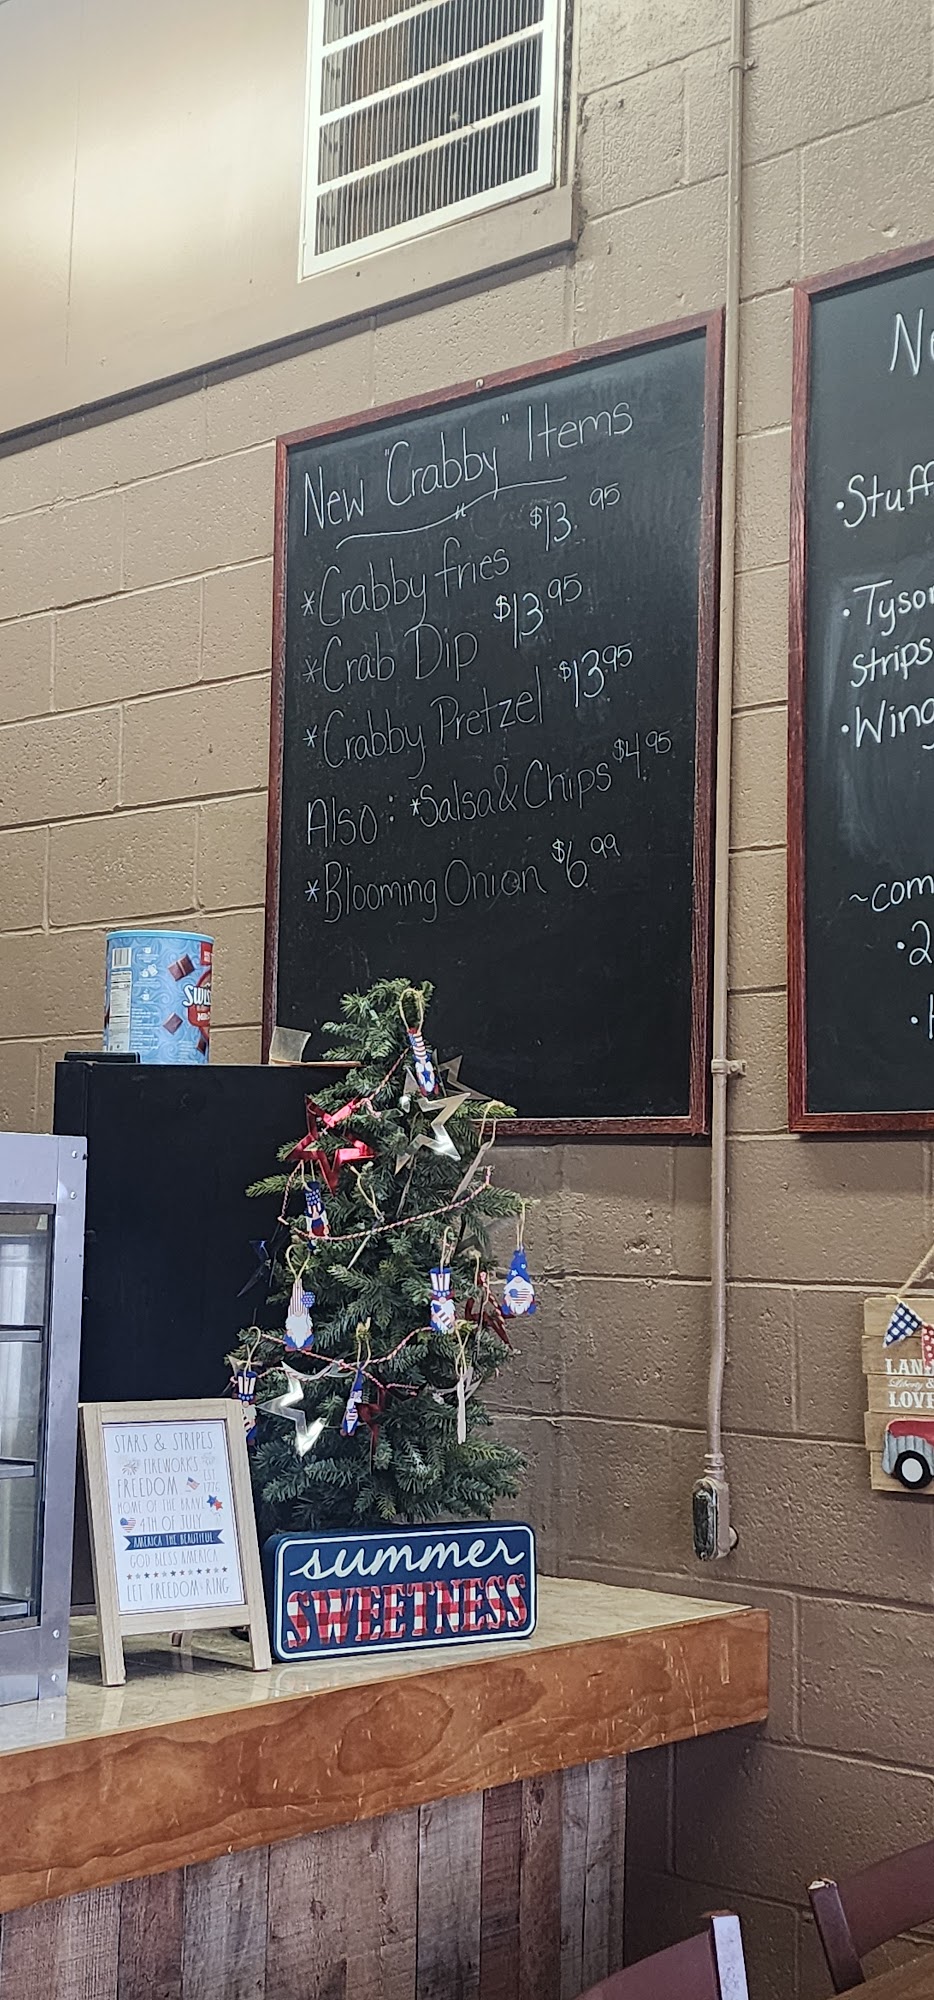 New "Crabby" Items
*Crabby fries $13.95
*Crab Dip $13.95
*Crabby Pretzel $13.95
Also: *Salsa & Chips $4.95
*Blooming Onion $6.99
Ne
•Stuff
•Tyson
Strips
•Wing
~com
•2
SWISS
STARS & STRIPES
FIREWORKS
FREEDOM EST. 1776
HOME OF THE BRAVE
4TH OF JULY
AMERICA THE BEAUTIFUL
GOD BLESS AMERICA
LET FREEDOM RING
summer
SWEETNESS
LAN
Liberty &
LOVE